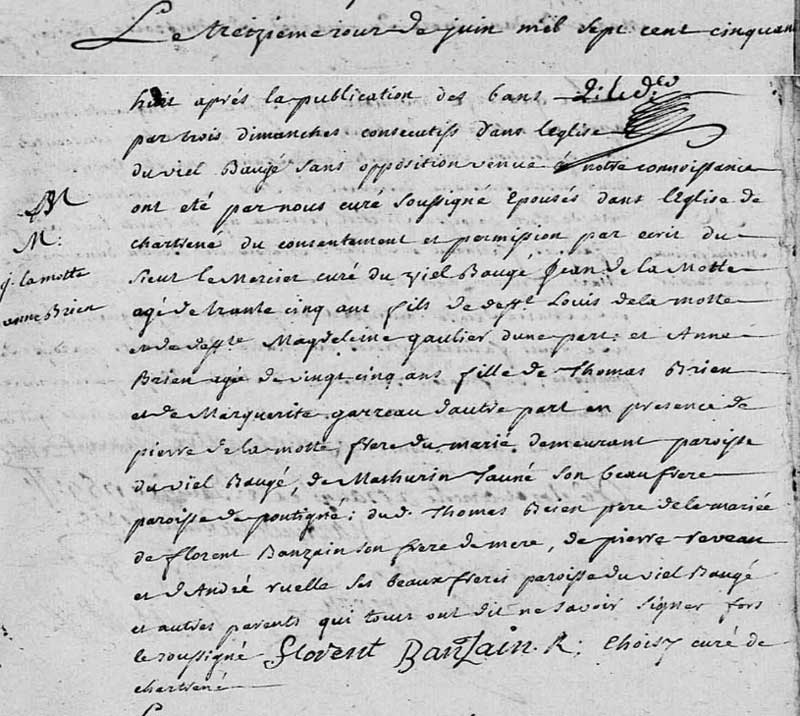 Le treizieme jour de juin mil sept cent cinquan
huit aprés la publication des bans
par trois dimanches consecutifs dans leglise
du viel Baugé sans opposition venue á notre connoissance
ont eté par nous curé soussigné Epousés dans lEglise de
chartrené du consentement et permission par ecrit du
sieur le Mercier curé du viel Baugé Jean de la Motte
agé de trante cinq ans fils de deft. Louis de la motte
et de defte Magdeleine gaulier dune part: et Anne
Brien agé de vingt cinq ans fille de Thomas Brien
et de Marguerite garreau dautre part en presence de
pierre de la motte frere du marié demeurant paroisse
du viel Baugé, de Mathurin Jauné son beaufrere
paroisse de pontigné; du d. Thomas Brien pere de la mariée
de florent Banzain son frere de mere, de pierre reveau
et dAndré ruelle ses beaux freres paroisse du viel Baugé
et autres parents qui tous ont dit ne savoir signer fors
le soussigné Florent Banzain. R: Choisy curé de
chartrené
M
M:
j. lamotte
anne Brien